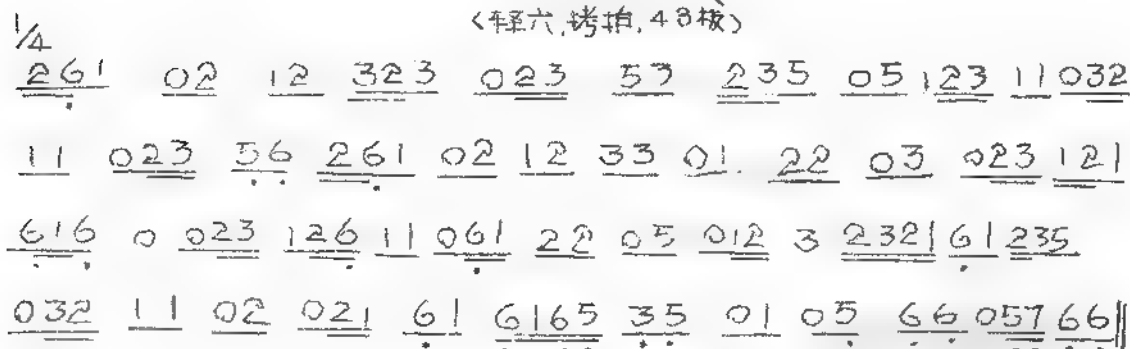 〈轻六,拷拍,48板〉
1/4
261 02 12 323 023 53 235 05 123 11 032
11 023 56 261 02 12 33 01 22 03 023 121
616 0 023 126 11 061 22 05 012 3 2321 61 235
032 11 02 021 61 6165 35 01 05 66 057 66‖